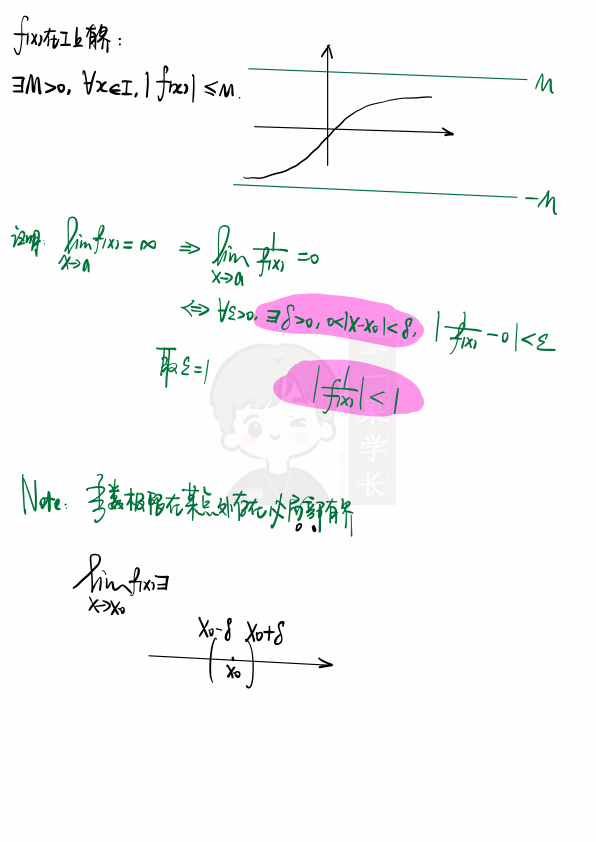 f(x)在I上有界:
∃M>0, ∀x∈I, |f(x)| ≤ M.
M
-M
证明: lim x→a f(x) = ∞ ⇒ lim x→a 1/f(x) = 0
⇔ ∀ε>0, ∃δ>0, 0<|x-x₀|<δ, |1/f(x) - 0| < ε
取ε=1 |1/f(x)| < 1
集学长
Note: 函数极限在某点处存在必局部有界
lim x→x₀ f(x) ∃
x₀-δ x₀+δ
x₀